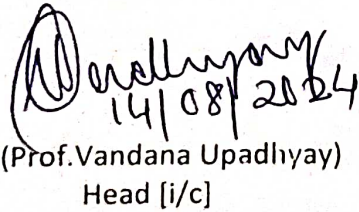 Upadhyay
14/08/2024
(Prof.Vandana Upadhyay)
Head [i/c]